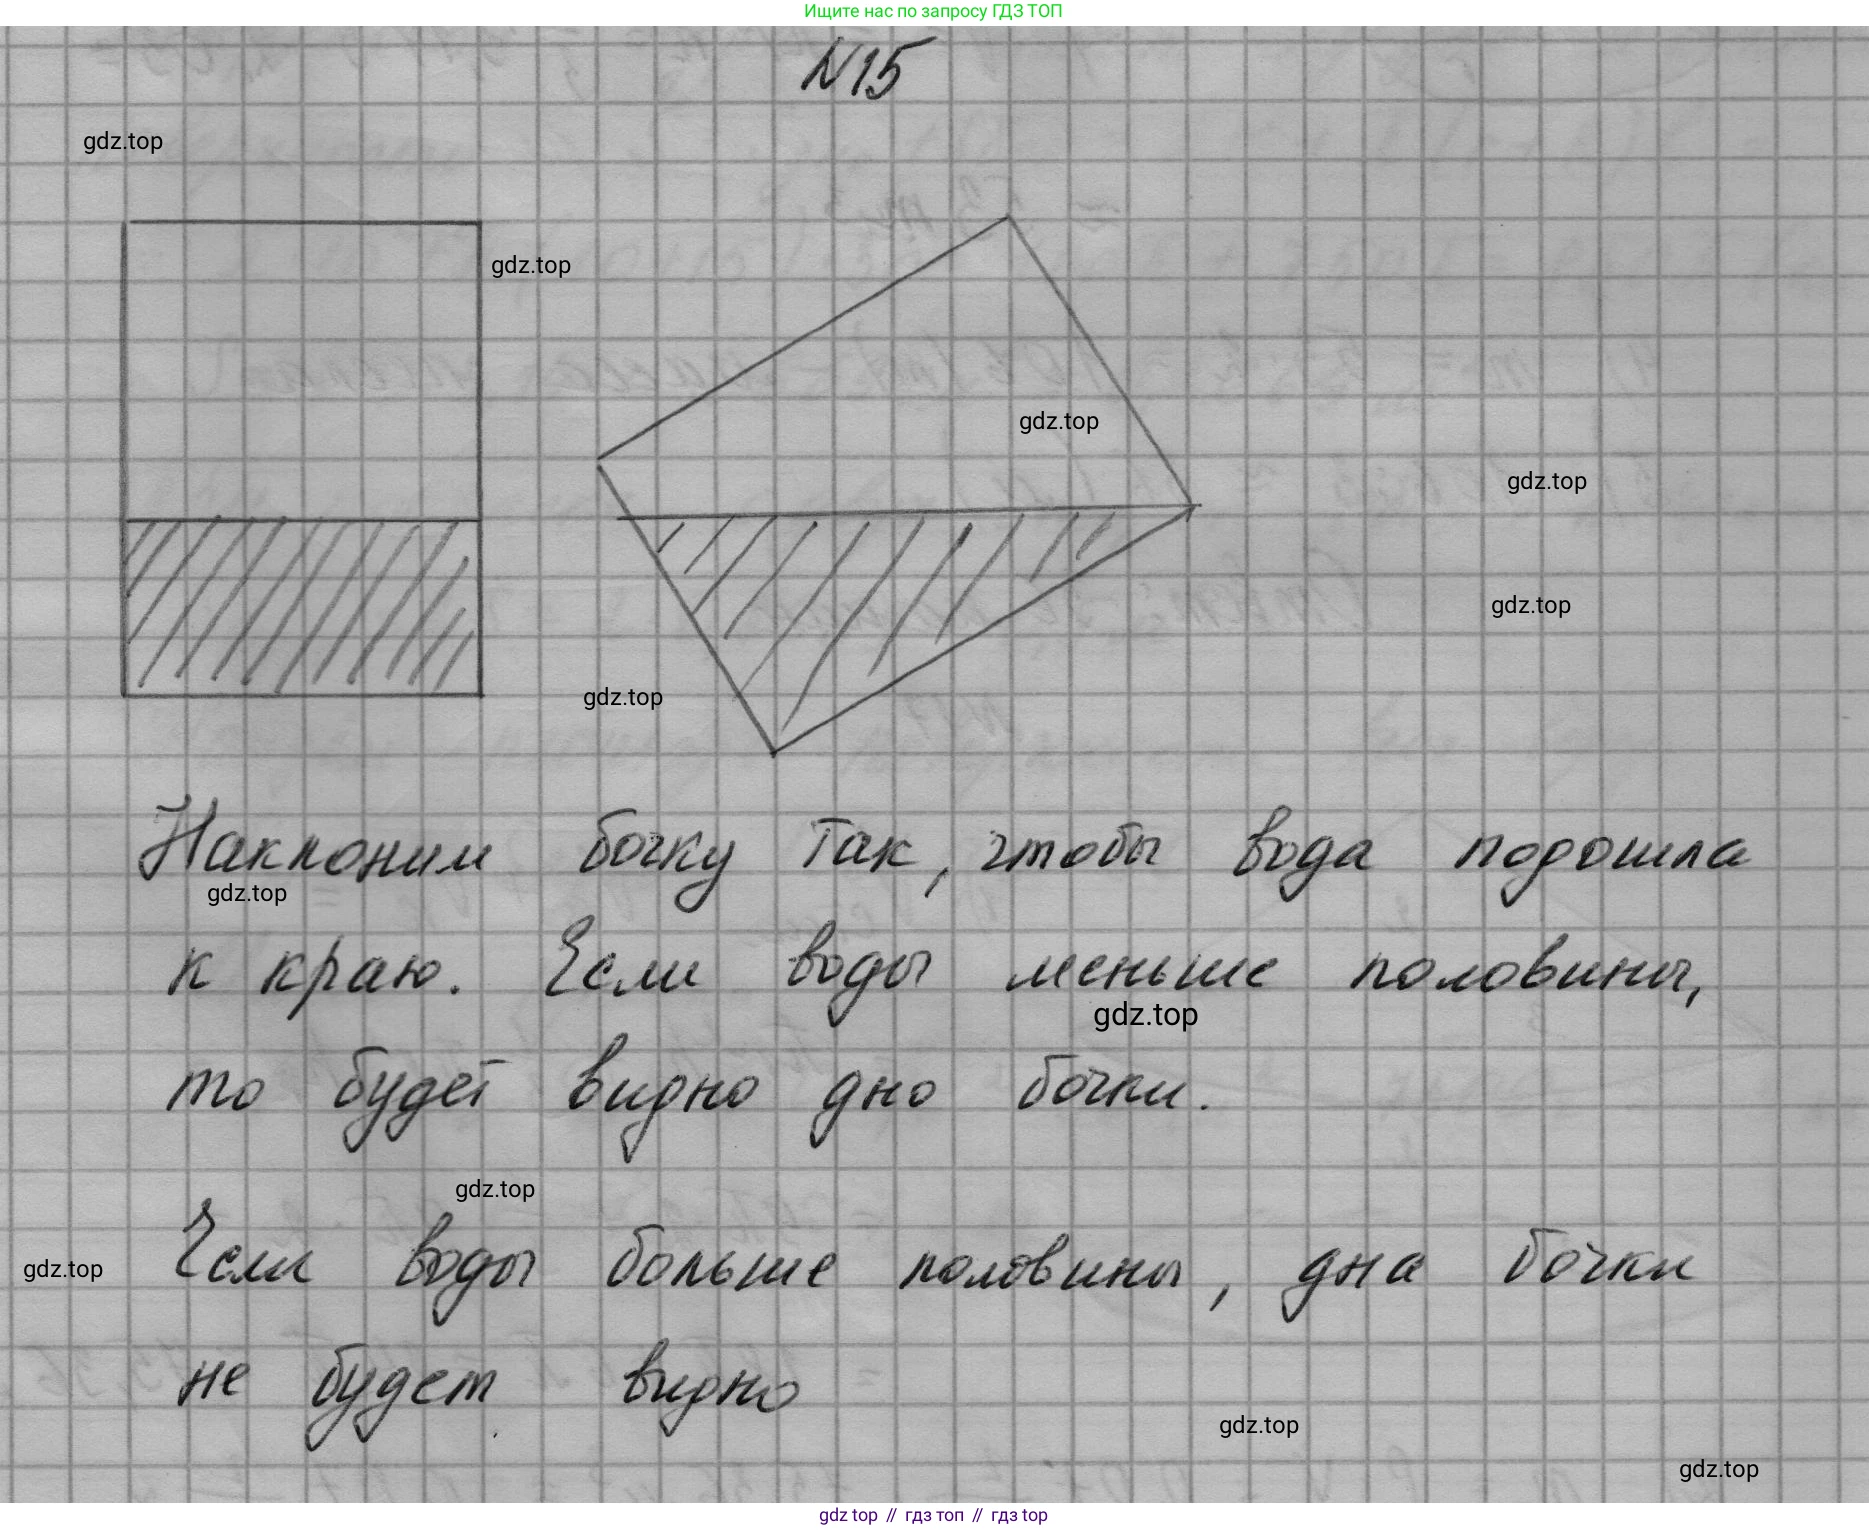 Ищите нас по запросу ГДЗ ТОП
N15
gdz.top
gdz.top
gdz.top
gdz.top
gdz.top
gdz.top
Наклоним бочку так, чтобы вода подошла
gdz.top
к краю. Если воды меньше половины,
gdz.top
то будет видно дно бочки.
gdz.top
Если воды больше половины, дна бочки
gdz.top
не будет видно
gdz.top
gdz.top
gdz top // гдз топ // гдз top